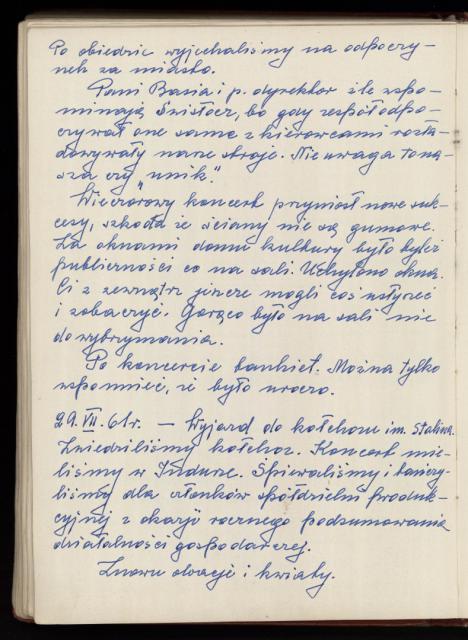 Po obiedzie wyjechaliśmy na odpoczy-
nek za miasto.
Pani Basia i p. dyrektor źle wspo-
minają Świsłocz, bo gdy zespół odpo-
czywał one same z kierowcami rozła-
dowywały nasze stroje. Nie uwaga to na-
sza czy "unik".
Wieczorowy koncert przyniósł nowe suk-
cesy, szkoda że ściany nie są gumowe.
Za oknami domu kultury było tyleż
publiczności co na sali. Uchylono okna.
Ci z zewnątrz jeszcze mogli coś usłyszeć
i zobaczyć. Gorąco było na sali nie
do wytrzymania.
Po koncercie bankiet. Można tylko
wspomnieć, że było uroczo.
29. VII. 61 r. — Wyjazd do kołchozu im. Stalina.
Zwiedziliśmy kołchoz. Koncert mie-
liśmy w Indurze. Śpiewaliśmy i tańczy-
liśmy dla członków spółdzielni produk-
cyjnej z okazji rocznego podsumowania
działalności gospodarczej.
Znowu owacje i kwiaty.